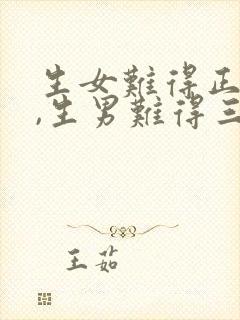 生女難得正
,生男難得三
王茹